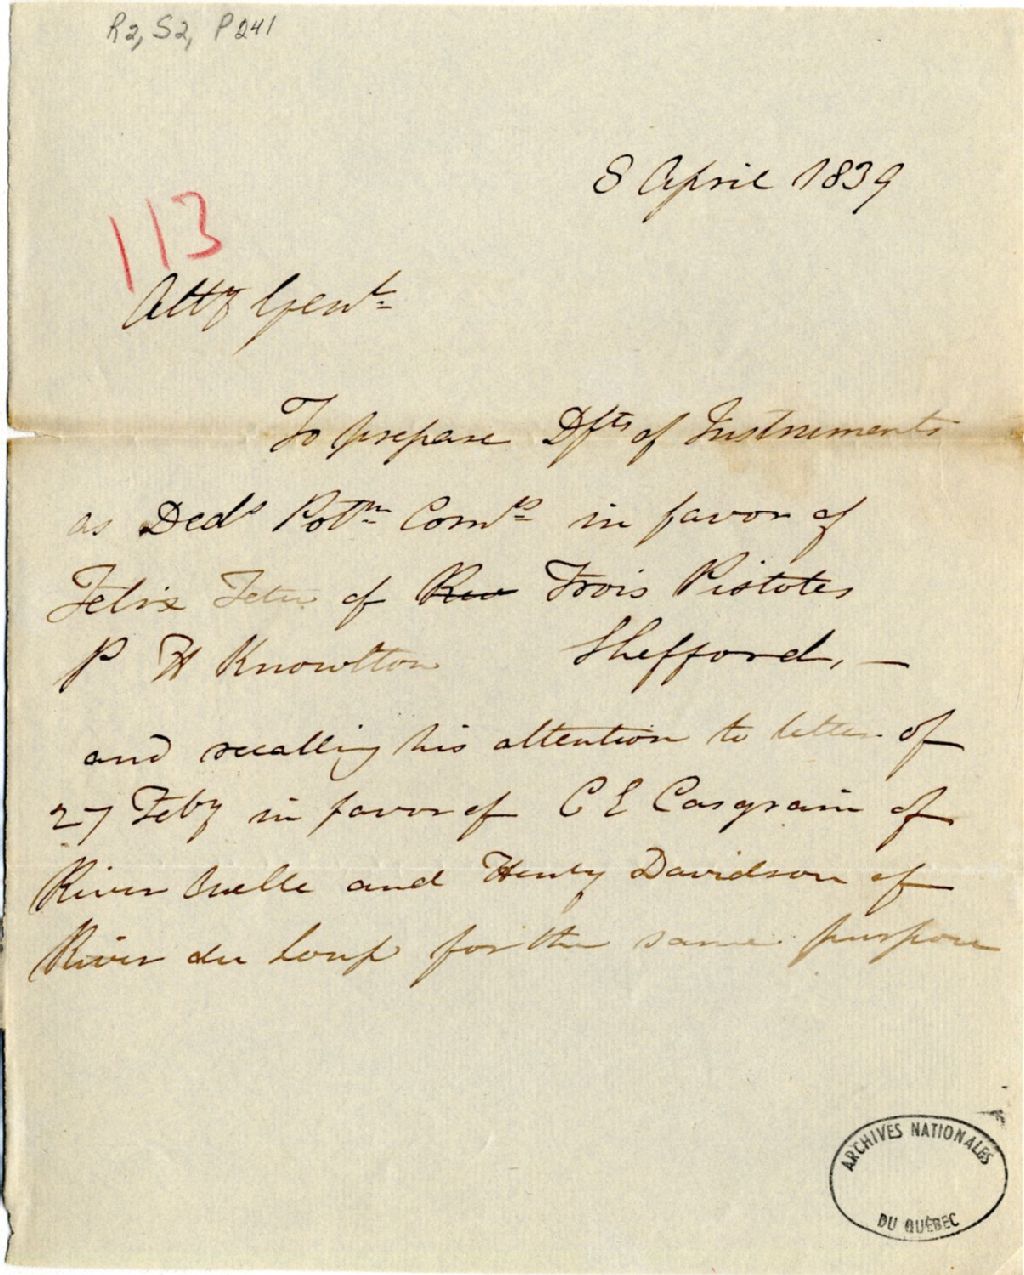 R2, S2, P241
8 April 1839
113
Atty Genl
To prepare Dfts of Instruments
as Ded's Potm Coms in favor of
Felix Tetu of Riv Trois Pistoles
P H Knowlton Shefford, —
and recalling his attention to letter of
27 Feby in favor of C E Casgrain of
River Ouelle and Henry Davidson of
River du Loup for the same purpose
ARCHIVES NATIONALES
DU QUÉBEC